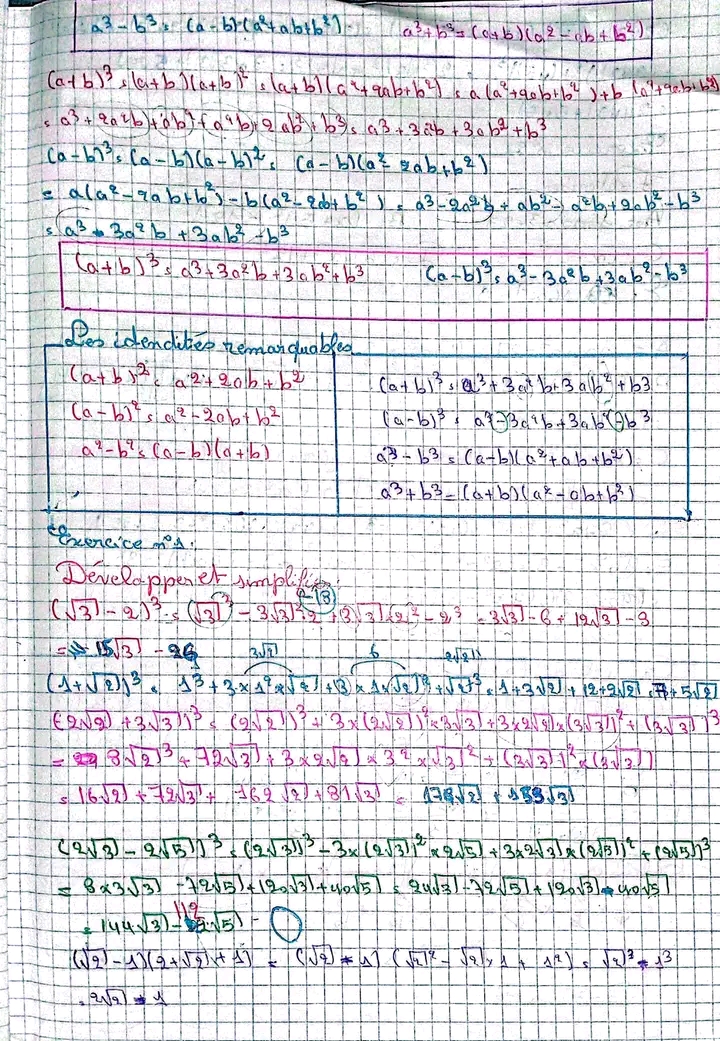 a³ - b³ = (a - b) (a² + ab + b²)    a³ + b³ = (a+b) (a² - ab + b²)
(a+b)³ = (a+b)(a+b)² = (a+b)(a²+2ab+b²) = a(a²+2ab+b²) + b(a²+2ab+b²)
= a³ + 2a²b + ab² + a²b + 2ab² + b³ = a³ + 3a²b + 3ab² + b³
(a-b)³ = (a-b)(a-b)² = (a-b)(a² - 2ab + b²)
= a(a² - 2ab + b²) - b(a² - 2ab + b²) = a³ - 2a²b + ab² - a²b + 2ab² - b³
= a³ - 3a²b + 3ab² - b³
(a+b)³ = a³ + 3a²b + 3ab² + b³    (a-b)³ = a³ - 3a²b + 3ab² - b³
Les idendités remarquables
(a+b)² = a² + 2ab + b²    (a+b)³ = a³ + 3a²b + 3ab² + b3
(a-b)² = a² - 2ab + b²    (a-b)³ = a³ - 3a²b + 3ab² - b³
a² - b² = (a-b)(a+b)    a³ - b³ = (a-b)(a² + ab + b²)
a³ + b³ = (a+b)(a² - ab + b²)
Exercice n°1:
Développer et simplifier
(√3 - 2)³ = (√3)³ - 3√3² × 2 + 3√3 × 2² - 2³ = 3√3 - 6 + 12√3 - 8
-18
= 15√3 - 26
3√2    6    2√2
(1+√2)³ = 1³ + 3×1²×√2 + 3×1×√2² + √2³ = 1 + 3√2 + 12 + 2√2 = 7 + 5√2
(2√2 + 3√3)³ = (2√2)³ + 3×(2√2)²×3√3 + 3×2√2×(3√3)² + (3√3)³
= 8√2³ + 72√3 + 3×2√2×3²×√3² + (3√3)²×(3√3)
= 16√2 + 72√3 + 162√2 + 81√3 = 178√2 + 153√3
(2√3 - 2√5)³ = (2√3)³ - 3×(2√3)²×2√5 + 3×2√3×(2√5)² + (2√5)³
= 8×3√3 - 72√5 + 120√3 + 40√5 = 24√3 - 72√5 + 120√3 - 40√5
= 144√3 - 112√5
(√2 - 1)(2 + √2 + 1) = (√2 - 1) (√2² - √2×1 + 1²) = √2³ - 1³
= 2√2 - 1